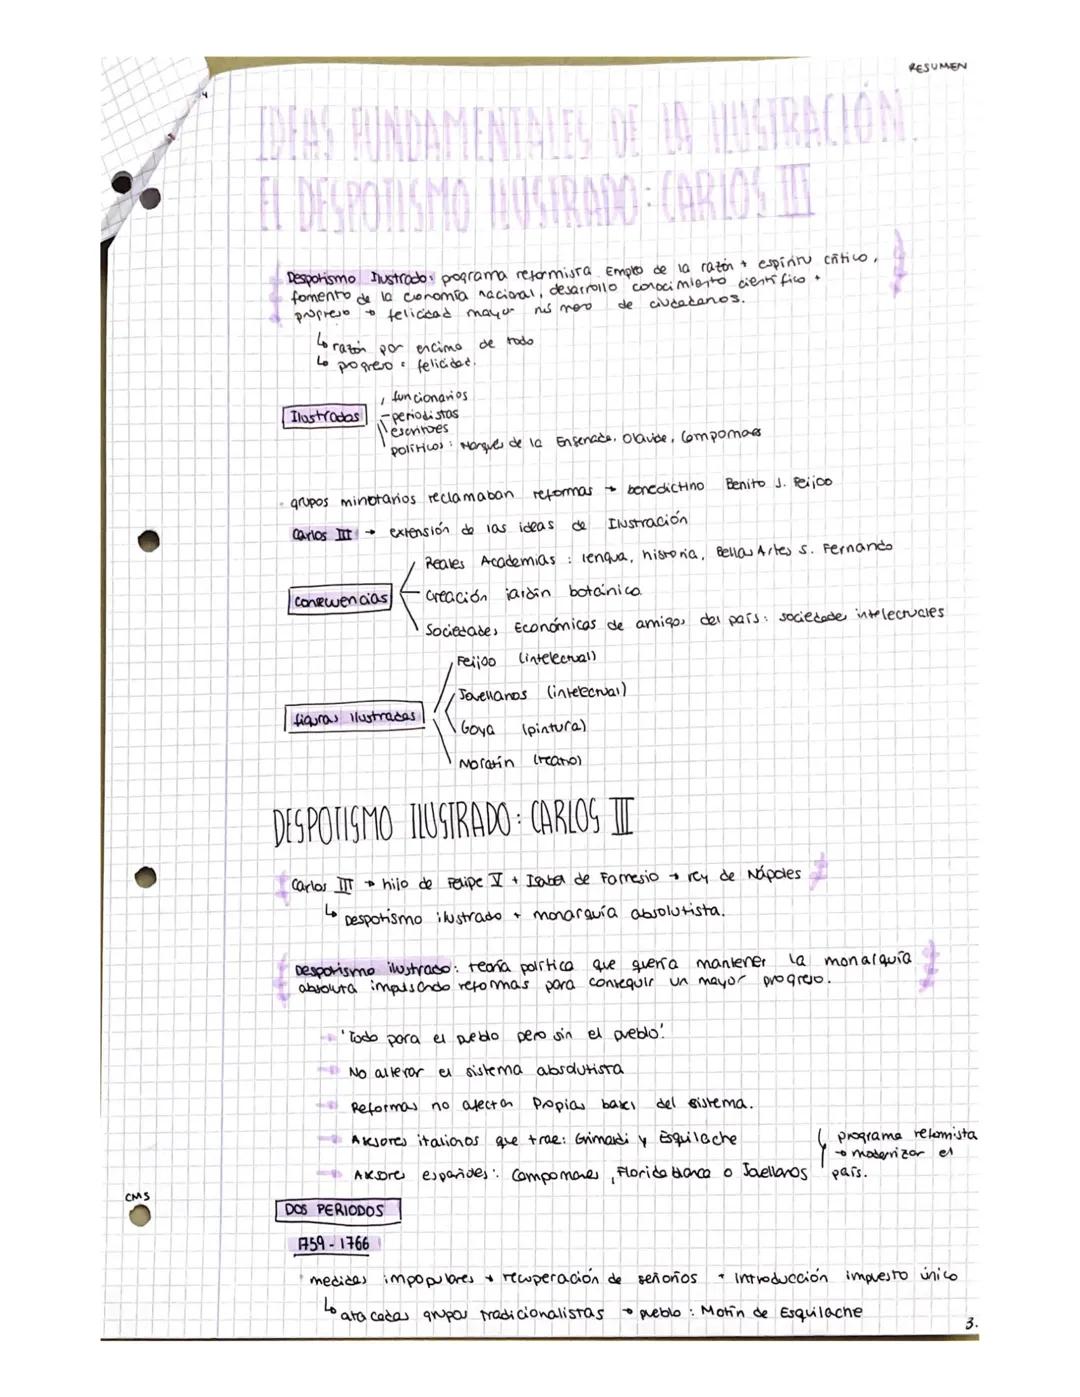 RESUMEN
IDEAS FUNDAMENTALES DE LA ILUSTRACIÓN.
EL DESPOTISMO ILUSTRADO: CARLOS III
Despotismo Ilustrado: programa reformista. Empleo de la razón + espíritu crítico,
fomento de la economía nacional, desarrollo conocimiento científico +
progreso → felicidad mayor nº de ciudadanos.
↳ razón por encima de todo
↳ progreso = felicidad.
Ilustrados
funcionarios
- periodistas
escritores
políticos: Marqués de la Ensenada, Olavide, Campomanes
grupos minotarios reclamaban reformas → benedictino Benito J. Feijoo
Carlos III → extensión de las ideas de Ilustración
consecuencias
Reales Academias: lengua, historia, Bellas Artes S. Fernando
creación jardín botánico
Sociedades Económicas de amigos del país: sociedades intelectuales
figuras ilustradas
Feijoo (intelectual)
Jovellanos (intelectual)
Goya (pintura)
Moratín (teatro)
DESPOTISMO ILUSTRADO: CARLOS III
Carlos III → hijo de Felipe V + Isabel de Farnesio → rey de Nápoles
↳ Despotismo ilustrado + monarquía absolutista.
Despotismo ilustrado: teoría política que quería mantener la monarquía
absoluta impulsando reformas para conseguir un mayor progreso.
'Todo para el pueblo pero sin el pueblo'.
No alterar el sistema absolutista
Reformas no afectan propias bases del sistema.
Asesores italianos que trae: Grimaldi y Esquilache
Asesores españoles: Campomanes, Floridablanca o Jovellanos
programa reformista
→ modernizar el
país.
CMS
DOS PERIODOS
1759 - 1766
medidas impopulares → recuperación de señoríos + introducción impuesto único
↳ atacadas grupos tradicionalistas → pueblo: Motín de Esquilache
3.